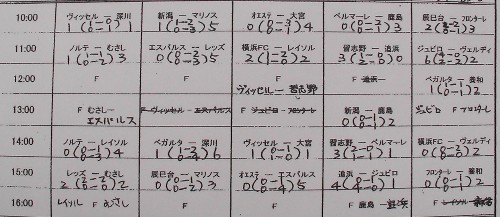 10:00 ヴィッセル ー 深川 新潟 ー マリノス オエステ ー 大宮 ベルマーレ ー 鹿島 辰巳台 ー フロンターレ
1 (0-0 0-1) 1 1 (1-2 0-3) 5 0 (0-3 0-1) 4 0 (0-2 0-1) 3 2 (2-2 0-1) 3
11:00 ノルテ ー むさし エスパルス ー レッズ 横浜FC ー レイソル 習志野 ー 追浜 ジュビロ ー ヴェルディ
1 (0-1 1-2) 3 0 (0-2 0-3) 5 2 (1-0 1-2) 2 3 (1-0 2-0) 0 6 (3-2 3-0) 2
12:00 F F ヴィッセル ー 習志野 F 追浜 ー ベガルタ ー 養和
1 (0-1 1-1) 2
13:00 F むさし ー エスパルス F ヴィッセル ー エスパルス F ジュビロ ー フロンターレ 新潟 ー 鹿島 ジュビロ F フロンターレ
0 (0-1 0-1) 2
14:00 ノルテ ー レイソル ベガルタ ー 深川 ヴィッセル ー 大宮 習志野 ー ベルマーレ 横浜FC ー ヴェルディ
0 (0-1 0-3) 4 1 (1-2 0-4) 6 1 (0-1 1-0) 1 3 (2-1 1-0) 1 0 (0-2 0-0) 2
15:00 レッズ ー むさし 辰巳台 ー マリノス オエステ ー エスパルス 追浜 ー ジュビロ フロンターレ ー 養和
2 (2-2 0-0) 2 0 (0-1 0-2) 3 0 (0-1 0-4) 5 4 (4-1 0-0) 1 0 (0-1 0-1) 2
16:00 レイソル F むさし F F F 鹿島 ー F レイソル ー